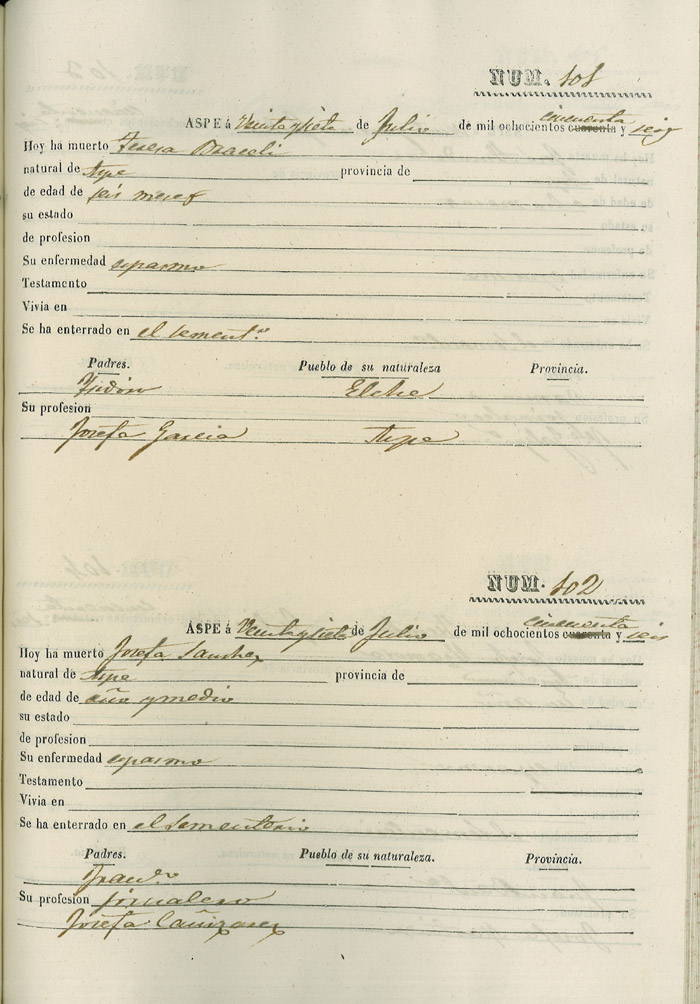 NUM. 101
cincuenta
ASPE á Veintysiete de Julio de mil ochocientos cuarenta y seis
Hoy ha muerto Teresa
natural de Aspe provincia de
de edad de seis meses
su estado
de profesion
Su enfermedad espasmo
Testamento
Vivia en
Se ha enterrado en el sement.º
Padres. Pueblo de su naturaleza Provincia.
Isidro Elche
Su profesion
Josefa Garcia Aspe
NUM. 102
cincuenta
ASPE á Veintysiete de Julio de mil ochocientos cuarenta y seis
Hoy ha muerto Josefa Sanchez
natural de Aspe provincia de
de edad de año y medio
su estado
de profesion
Su enfermedad espasmo
Testamento
Vivia en
Se ha enterrado en el sementerio
Padres. Pueblo de su naturaleza. Provincia.
Fran.co
Su profesion jornalero
Josefa Cañizares